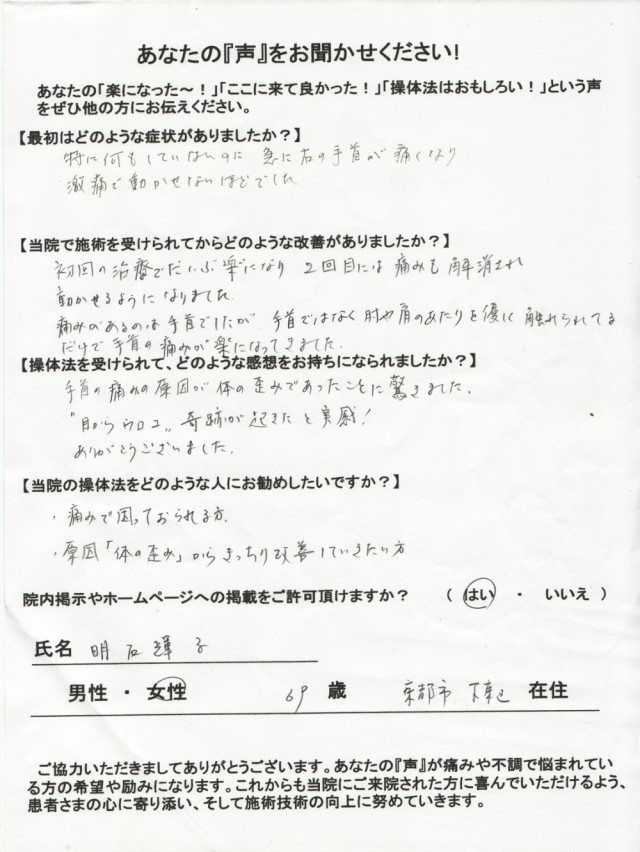 あなたの『声』をお聞かせください!
あなたの「楽になった～!」「ここに来て良かった!」「操体法はおもしろい!」という声
をぜひ他の方にお伝えください。
【最初はどのような症状がありましたか?】
特に何もしていないのに 急に右の手首が痛くなり
激痛で動かせないほどでした
【当院で施術を受けられてからどのような改善がありましたか?】
初回の治療でだいぶ楽になり 2回目には痛みも解消され
動かせるようになりました
痛みがあるのは手首でしたが、手首ではなく肘や肩のあたりを優しく触れられてる
だけで手首の痛みが楽になってきました。
【操体法を受けられて、どのような感想をお持ちになられましたか?】
手首の痛みの原因が体の歪みであったことに驚きました。
"目からウロコ" 奇跡が起きたと実感!
ありがとうございました。
【当院の操体法をどのような人にお勧めしたいですか?】
・痛みで困っておられる方。
・原因「体の歪み」からきっちり改善していきたい方
院内掲示やホームページへの掲載をご許可頂けますか? ( はい ・ いいえ )
氏名 明石輝子
男性 ・ 女性 69 歳 京都市 在住
ご協力いただきましてありがとうございます。あなたの『声』が痛みや不調で悩まれてい
る方の希望や励みになります。これからも当院にご来院された方に喜んでいただけるよう、
患者さまの心に寄り添い、そして施術技術の向上に努めていきます。